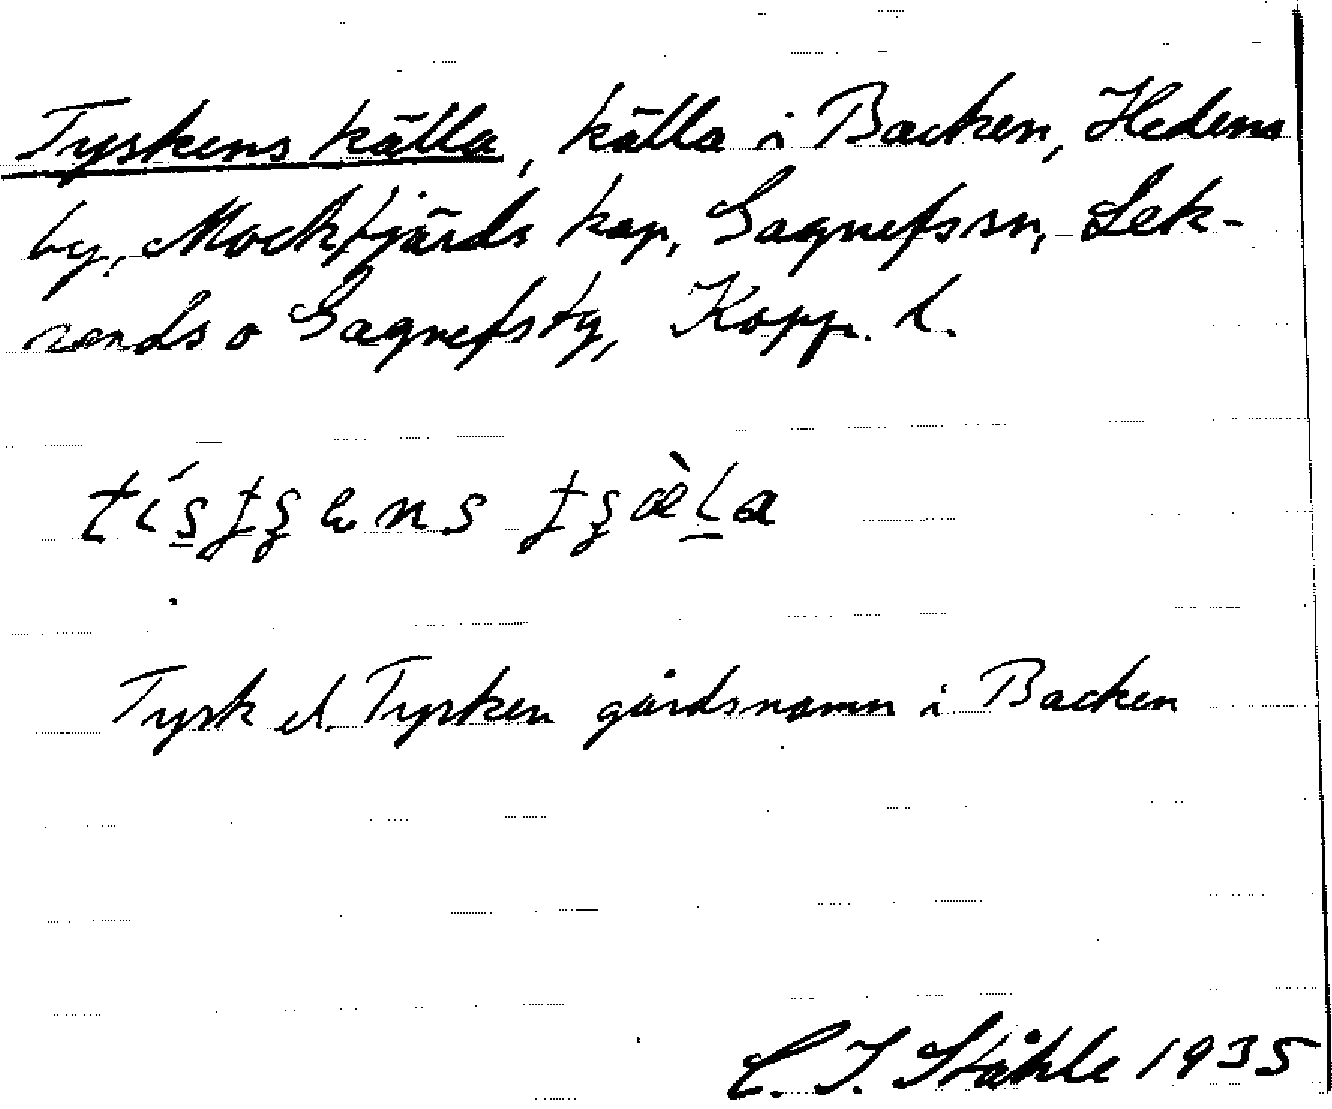 Tyskens källa, källa i Backen, Hedens
by, Mockfjärds kap, Gagnefs sn, Lek-
sands o Gagnefs tg, Kopp. l.
Tysk el. Tysken gårdsnamn i Backen
C. I. Ståhle 1935